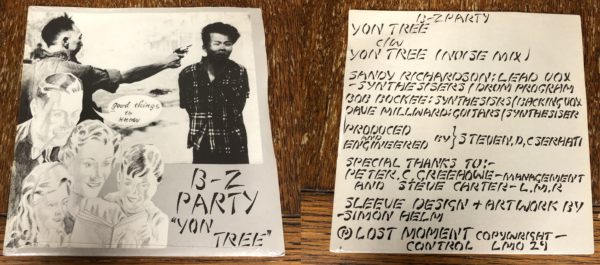 good things
to
know
B-Z
PARTY
"YON
TREE"
B-Z PARTY
YON TREE
C/W
YON TREE (NOISE MIX)
SANDY RICHARDSON: LEAD VOX
-SYNTHESISERS/DRUM PROGRAM
BOB BOCKEE: SYNTHESISRS/BACKING VOX
DAVE MILLWARD: GUITARS/SYNTHESISER
PRODUCED
AND
ENGINEERED BY} STEVEN,D,CSERHATI
SPECIAL THANKS TO:-
PETER.C.GREEHOWE-MANAGEMENT
AND STEVE CARTER-L.M.R
SLEEVE DESIGN + ARTWORK BY
-SIMON HELM
Ⓟ LOST MOMENT COPYWRIGHT-
CONTROL LMO 29